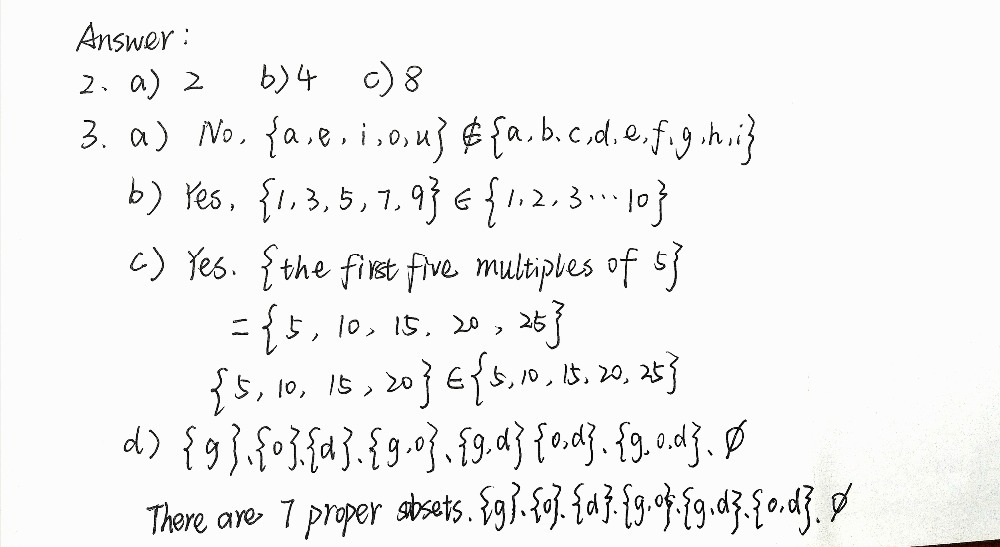 Answer:
2. a) 2 b) 4 c) 8
3. a) No. {a,e,i,o,u} ∉ {a,b,c,d,e,f,g,h,i}
b) Yes. {1,3,5,7,9} ∈ {1,2,3…10}
c) Yes. {the first five multiples of 5}
= {5, 10, 15, 20, 25}
{5, 10, 15, 20} ∈ {5,10,15,20,25}
d) {g}、{o}、{d}、{g,o}、{g,d} {o,d}、{g,o,d}、∅
There are 7 proper sbsets. {g}、{o}、{d}、{g,o}、{g,d}、{o,d}、∅